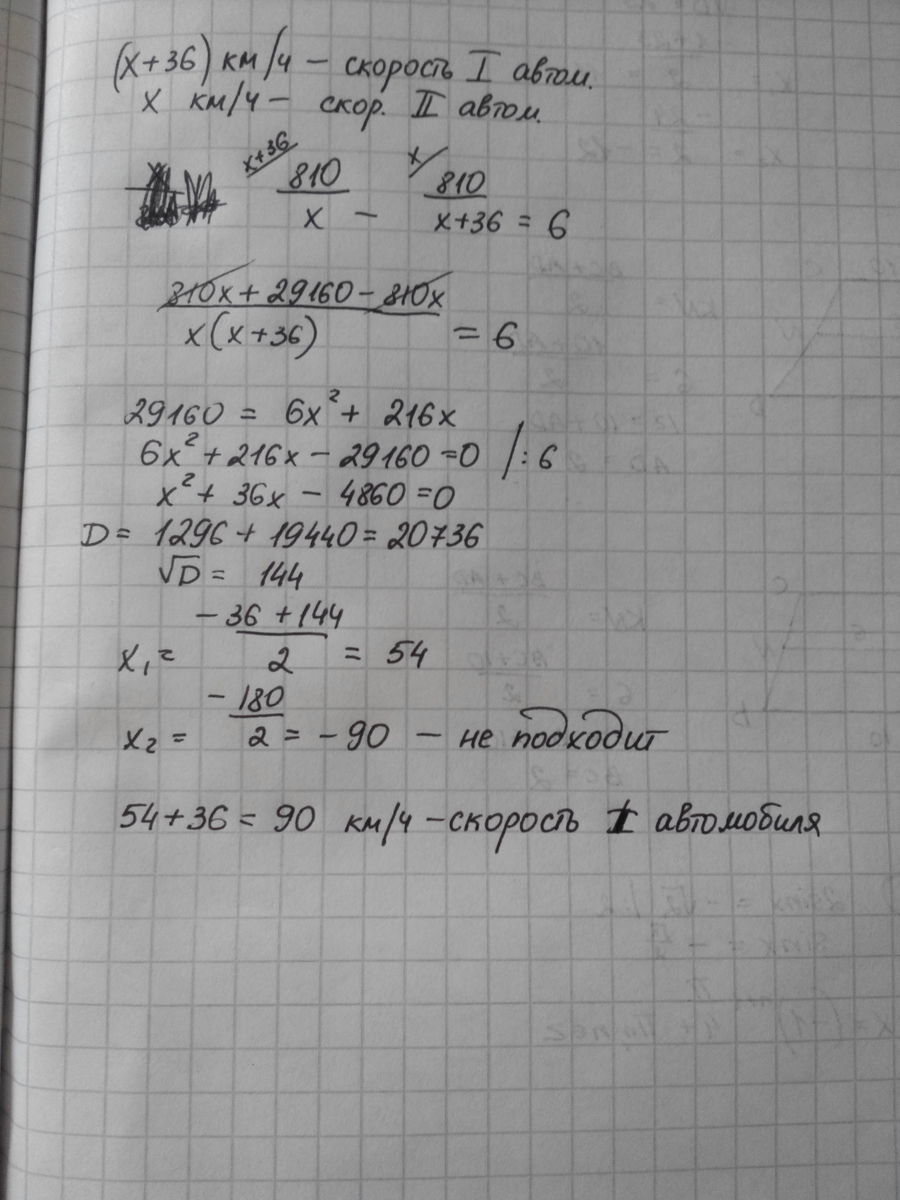 (x+36) км/ч – скорость I автом.
x км/ч – скор. II автом.
x+36/ 810/x – x/ 810/(x+36) = 6
(810x + 29160 – 810x)/(x(x+36)) = 6
29160 = 6x² + 216x
6x² + 216x – 29160 = 0 /:6
x² + 36x – 4860 = 0
D = 1296 + 19440 = 20736
√D = 144
x₁ = (-36 + 144)/2 = 54
x₂ = -180/2 = -90 – не подходит
54 + 36 = 90 км/ч – скорость I автомобиля